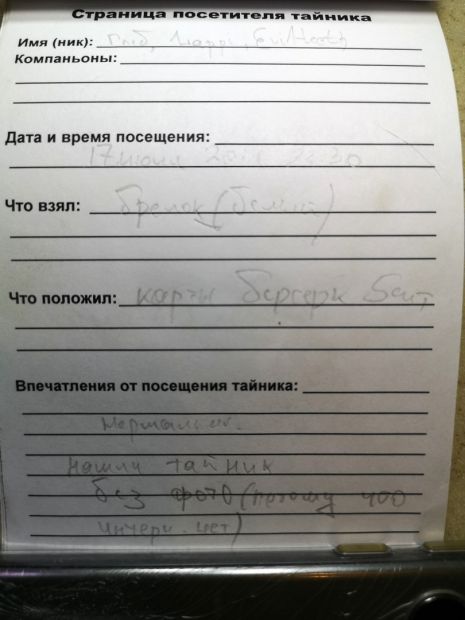 Страница посетителя тайника
Имя (ник): Глеб,
Компаньоны:
Дата и время посещения:
17 июля
Что взял: Брелок (белый)
Что положил: карты бергерк
Впечатления от посещения тайника:
нашли тайник
без фото (потому что
нет)